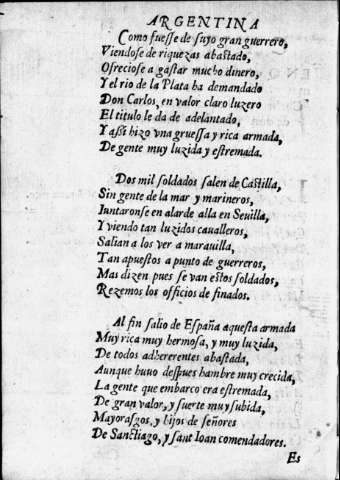 ARGENTINA
Como fuesse de suyo gran guerrero,
Viendose de riquezas abastado,
Ofreciose a gastar mucho dinero,
Y el rio de la Plata ha demandado
Don Carlos, en valor claro luzero
El titulo le da de adelantado,
Y assi hizo vna gruessa y rica armada,
De gente muy luzida y estremada.
Dos mil soldados salen de Castilla,
Sin gente de la mar y marineros,
Iuntaronse en alarde alla en Seuilla,
Y viendo tan luzidos caualleros,
Salian a los ver a marauilla,
Tan apuestos a punto de guerreros,
Mas dizen pues se van estos soldados,
Rezemos los officios de finados.
Al fin salio de España aquesta armada
Muy rica muy hermosa, y muy luzida,
De todos adherentes abastada,
Aunque huuo despues hambre muy crecida,
La gente que embarco era estremada,
De gran valor, y suerte muy subida,
Mayorasgos, y hijos de señores
De Sanctiago, y sant Ioan comendadores.
Es